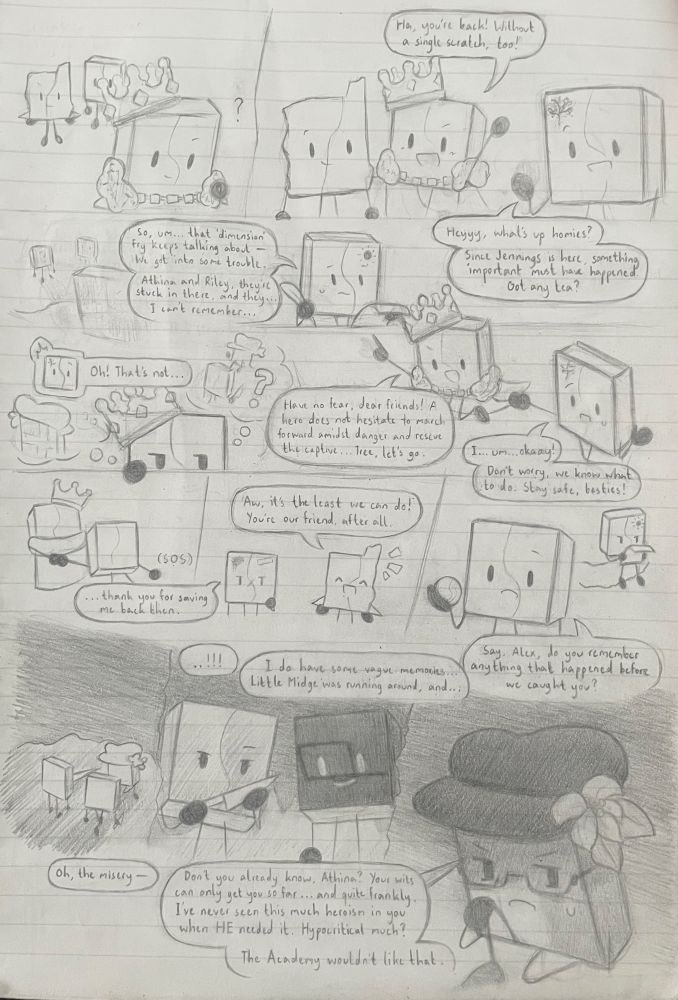 Ha, you're back! Without
a single scratch, too!
?
Heyyy, what's up homies?
Since Jennings is here, something
important must have happened.
Got any tea?
So, um... that 'dimension'
Fry keeps talking about —
We got into some trouble.
Athina and Riley, they're
stuck in there, and they...
I can't remember...
Oh! That's not...
?
Have no fear, dear friends! A
hero does not hesitate to march
forward amidst danger and rescue
the captive... Tree, let's go.
I... um... okaay!
Don't worry, we know what
to do. Stay safe, besties!
(SOS)
...thank you for saving
me back then.
Aw, it's the least we can do!
You're our friend, after all.
Say, Alex, do you remember
anything that happened before
we caught you?
I do have some vague memories...
Little Midge was running around, and...
..!!!
Oh, the misery —
Don't you already know, Athina? Your wits
can only get you so far... and quite frankly,
I've never seen this much heroism in you
when HE needed it. Hypocritical much?
The Academy wouldn't like that.